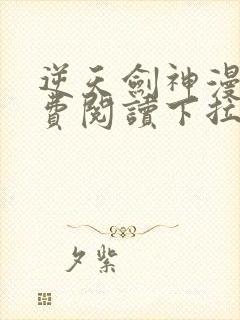 逆天劍神漫
費閱讀下拉
夕紫